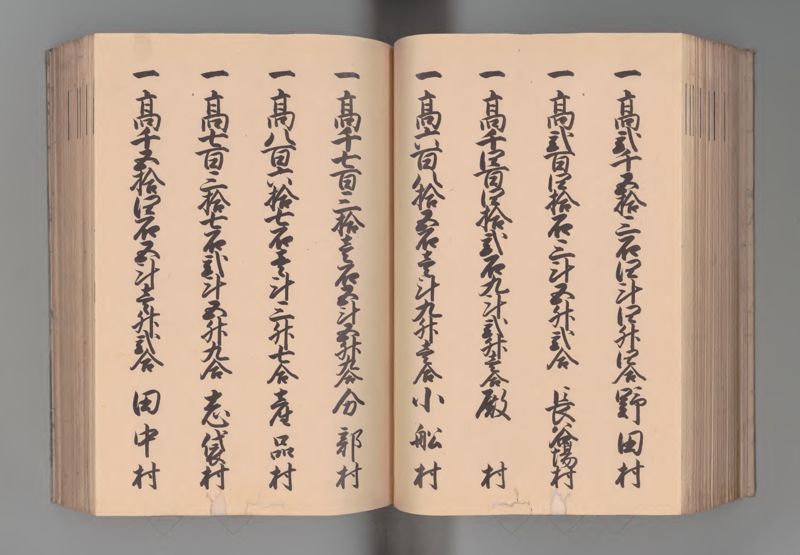 一高弐千五拾三石四斗四升四合野田村
一高弐百四拾石三斗五升弐合 長会場村
一高千四百四拾弐石九斗弐升壱合 殿 村
一高六百八拾五石壱斗九升壱合 小船村
一高千七百三拾壱石五斗五升九合 分郭村
一高八百六拾七石壱斗三升七合 産品村
一高七百三拾七石弐斗五升九合 志袋村
一高千五拾四石五斗壱升弐合 田中村